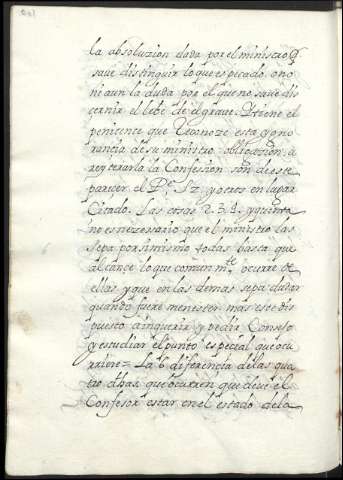 la absoluzion dada por el ministro q̃
save distinguir lo que es pecado, o no
ni aun la duda por el que no save dis
cernir el lebe de el grave. Y tiene el
penitente que reconoze esta ygno
rancia de su ministro obligazion a
reyterar la Confesion son de este
parecer el Pe. y otros en lugar
Citado. Las otras 2. 3. 4. y quinta
no es nezessario que el ministro las
sepa por si mismo todas basta que
alcançe lo que comun mte. ocurre de
ellas y que en las demas sepa dudar
quando fuere menester mas este dis
puesto a inquerir y pedir Consejo
y estudiar el punto especial que ocu
rriere = La 6 diferencia de las qua
tro dhas. que ocurren que deve el
Confesor estar en el estado de la